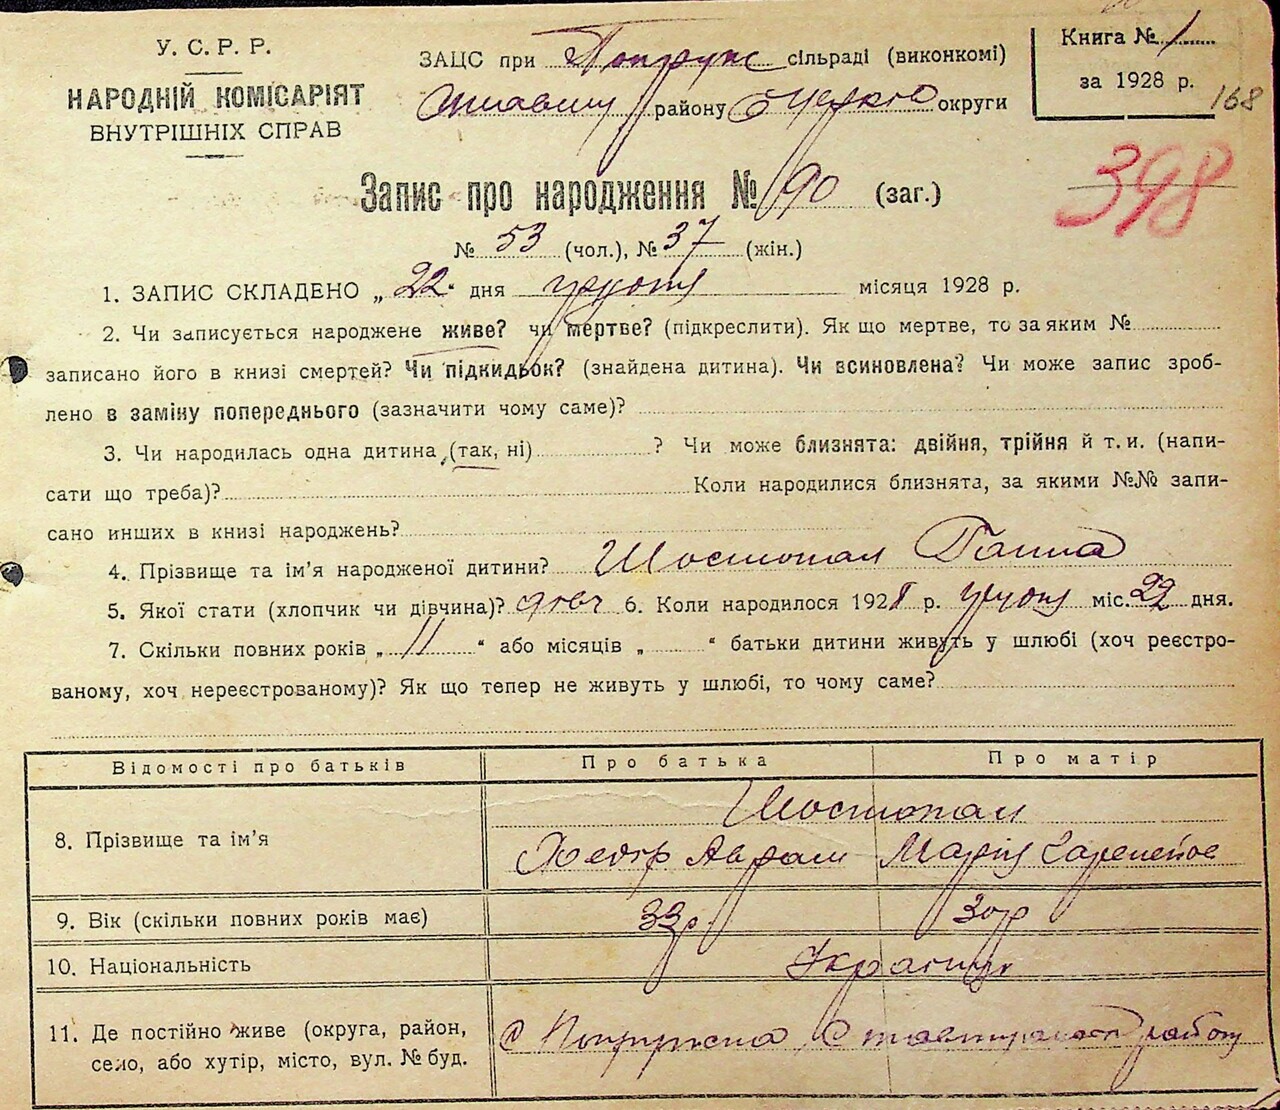 У. С. Р. Р.
НАРОДНІЙ КОМІСАРІЯТ
ВНУТРІШНІХ СПРАВ
ЗАЦС при сільраді (виконкомі)
району округи
Книга № 1
за 1928 р.
168
398
Запис про народження № 90 (заг.)
№ 53 (чол.), № 37 (жін.)
1. ЗАПИС СКЛАДЕНО „22“ дня грудня місяця 1928 р.
2. Чи записується народжене живе? чи мертве? (підкреслити). Як що мертве, то за яким №
записано його в книзі смертей? Чи підкидьок? (знайдена дитина). Чи всиновлена? Чи може запис зроб-
лено в заміну попереднього (зазначити чому саме)?
3. Чи народилась одна дитина (так, ні) ? Чи може близнята: двійня, трійня й т. и. (напи-
сати що треба)? Коли народилися близнята, за якими №№ запи-
сано инших в книзі народжень?
4. Прізвище та ім’я народженої дитини? Шостопал Ганна
5. Якої стати (хлопчик чи дівчина)? дівч 6. Коли народилося 1928 р. грудня міс. 22 дня.
7. Скільки повних років „ 11 “ або місяців „ “ батьки дитини живуть у шлюбі (хоч реєстро-
ваному, хоч нереєстрованому)? Як що тепер не живуть у шлюбі, то чому саме?
Відомості про батьків Про батька Про матір
8. Прізвище та ім’я Шостопал
Федір Аврам Марія
9. Вік (скільки повних років має) 33р. 30р
10. Національність Українці
11. Де постійно живе (округа, район,
село, або хутір, місто, вул. № буд.
с району